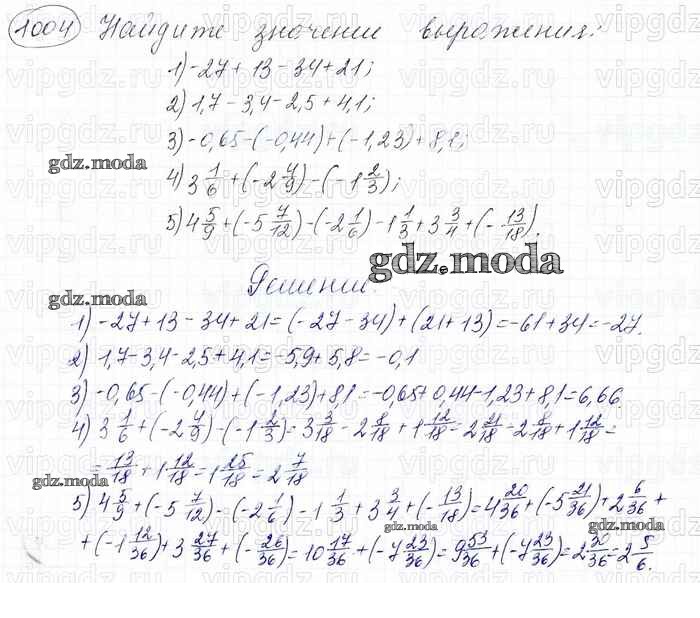 1004 Найдите значение выражения:
1) -27 + 13 - 34 + 21;
2) 1,7 - 3,4 - 2,5 + 4,1;
3) -0,65 - (-0,44) + (-1,23) + 8,1;
gdz.moda
4) 3 1/6 + (-2 4/9) - (-1 2/3);
5) 4 5/9 + (-5 7/12) - (-2 1/6) - 1 1/3 + 3 3/4 + (- 13/18).
gdz.moda
Решение.
gdz.moda
1) -27 + 13 - 34 + 21 = (-27 - 34) + (21 + 13) = -61 + 34 = -27.
2) 1,7 - 3,4 - 2,5 + 4,1 = -5,9 + 5,8 = -0,1
3) -0,65 - (-0,44) + (-1,23) + 8,1 = -0,65 + 0,44 - 1,23 + 8,1 = 6,66
4) 3 1/6 + (-2 4/9) - (-1 2/3) = 3 3/18 - 2 8/18 + 1 12/18 = 2 21/18 - 2 8/18 + 1 12/18 =
= 13/18 + 1 12/18 = 1 25/18 = 2 7/18
gdz.moda
5) 4 5/9 + (-5 7/12) - (-2 1/6) - 1 1/3 + 3 3/4 + (- 13/18) = 4 20/36 + (-5 21/36) + 2 6/36 +
gdz.moda
gdz.moda
+ (-1 12/36) + 3 27/36 + (- 26/36) = 10 17/36 + (-7 23/36) = 9 53/36 + (-7 23/36) = 2 30/36 = 2 5/6.